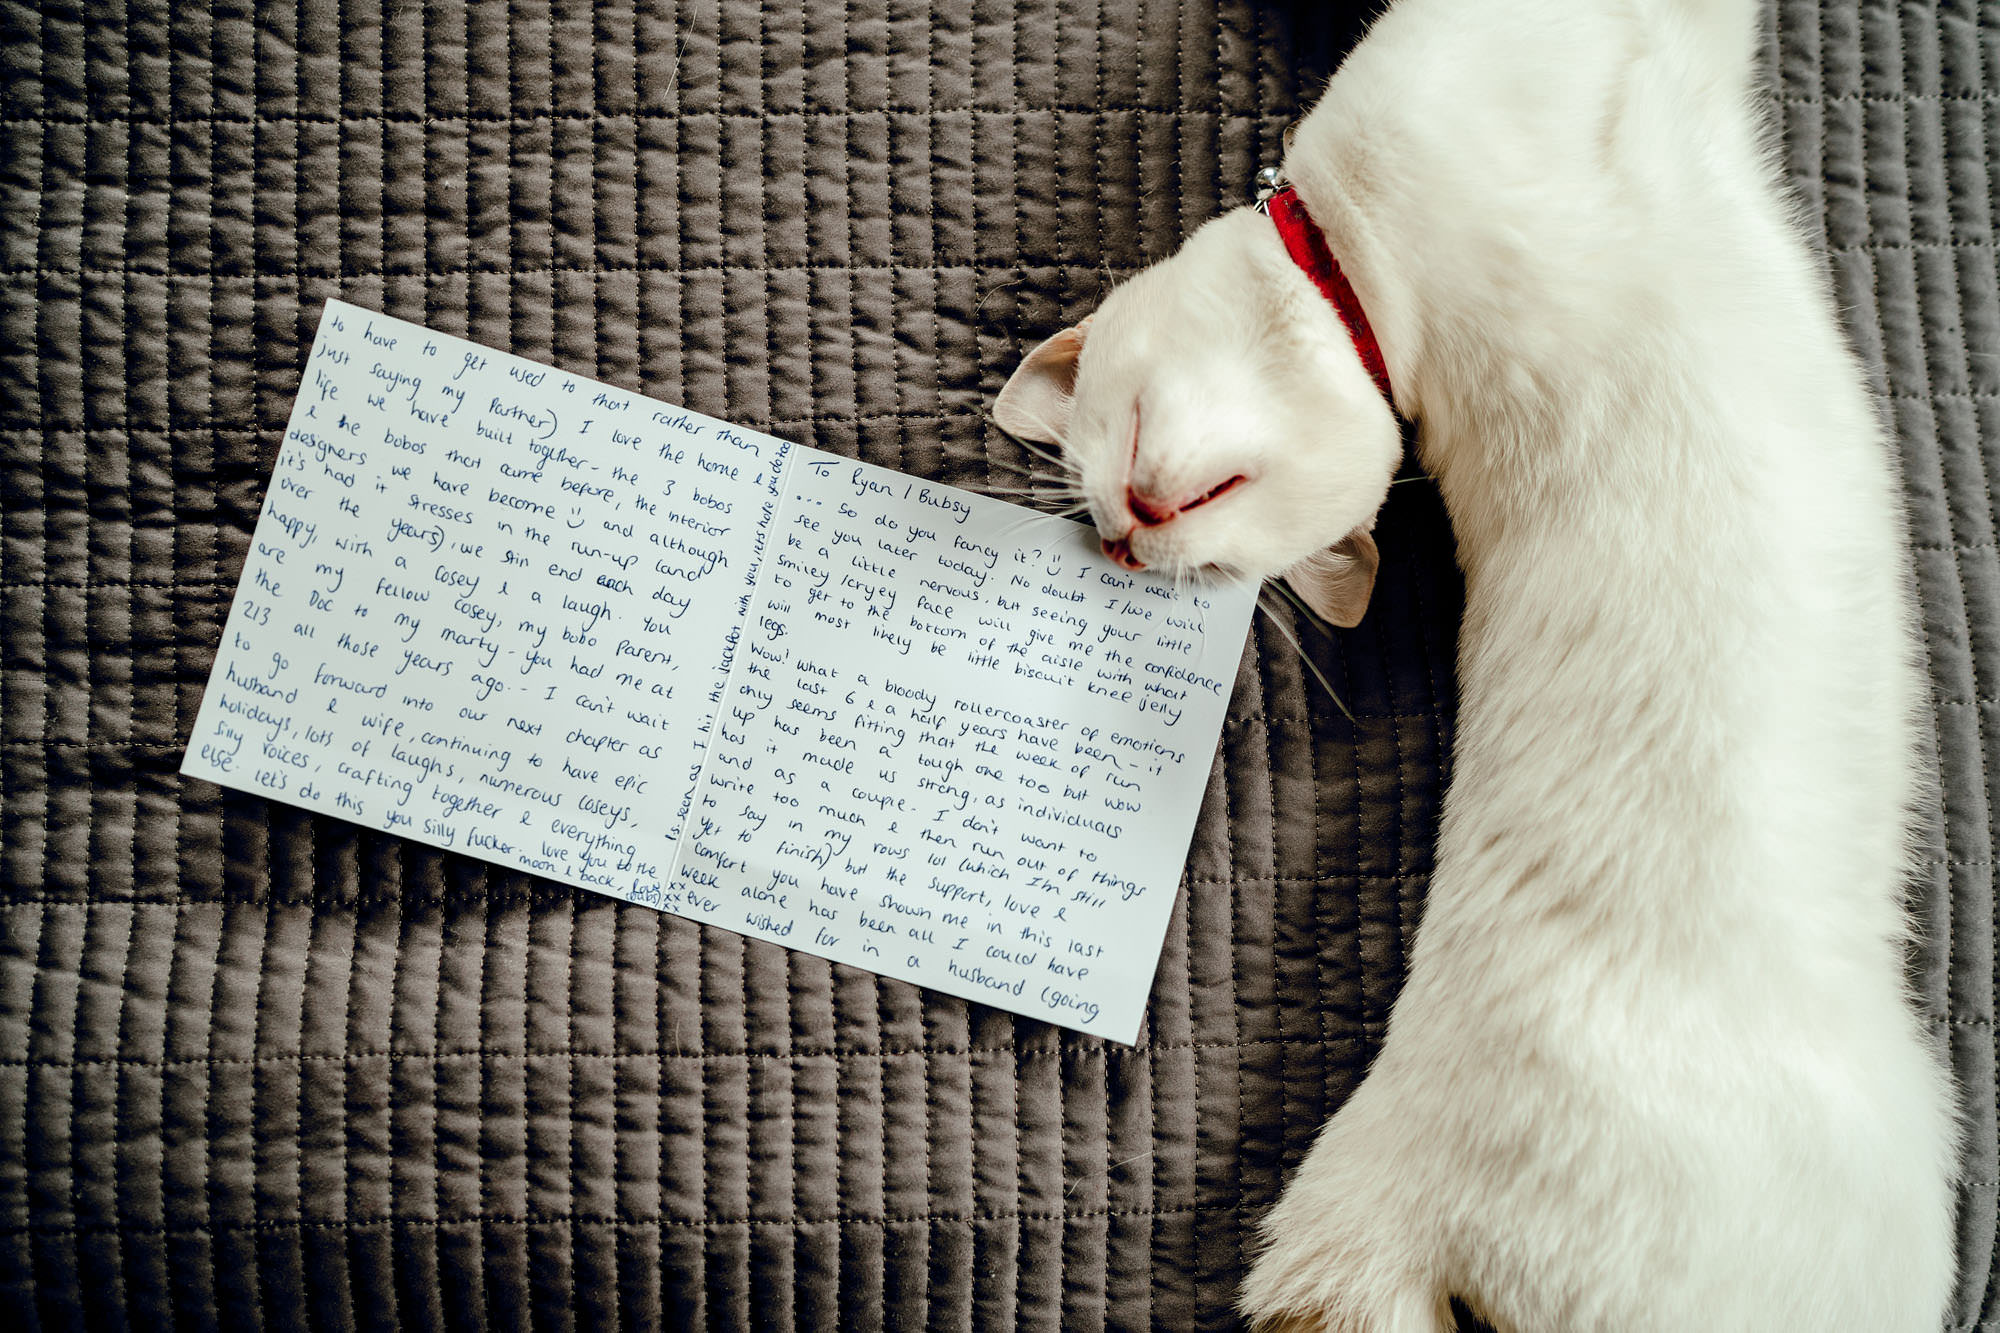 To Ryan / Bubsy
... so do you fancy it? :) I can't wait to
see you later today. No doubt I/we will
be a little nervous, but seeing your little
smiley /cryey face will give me the confidence
to get to the bottom of the aisle with what
will most likely be little biscuit knee jelly
legs.
Wow! what a bloody rollercoaster of emotions
the last 6 & a half years have been - it
only seems fitting that the week of run
up has been a tough one too but wow
has it made us strong, as individuals
and as a couple - I don't want to
write too much & then run out of things
to say in my vows lol (which I'm still
yet to finish) but the support, love &
comfort you have shown me in this last
week alone has been all I could have
ever wished for in a husband (going
to have to get used to that rather than
just saying my Partner) I love the home &
life we have built together - the 3 bobos
& the bobos that came before, the interior
designers we have become :) and although
it's had it stresses in the run-up (and
over the years), we still end each day
happy, with a cosey & a laugh. You
are my fellow cosey, my bobo parent,
the Doc to my marty - you had me at
213 all those years ago.. - I can't wait
to go forward into our next chapter as
husband & wife, continuing to have epic
holidays, lots of laughs, numerous coseys,
silly voices, crafting together & everything
else. let's do this you silly fucker. love you to the
moon & back,
xx
xx
xx
I hit the jackpot with you, let's hope you do too